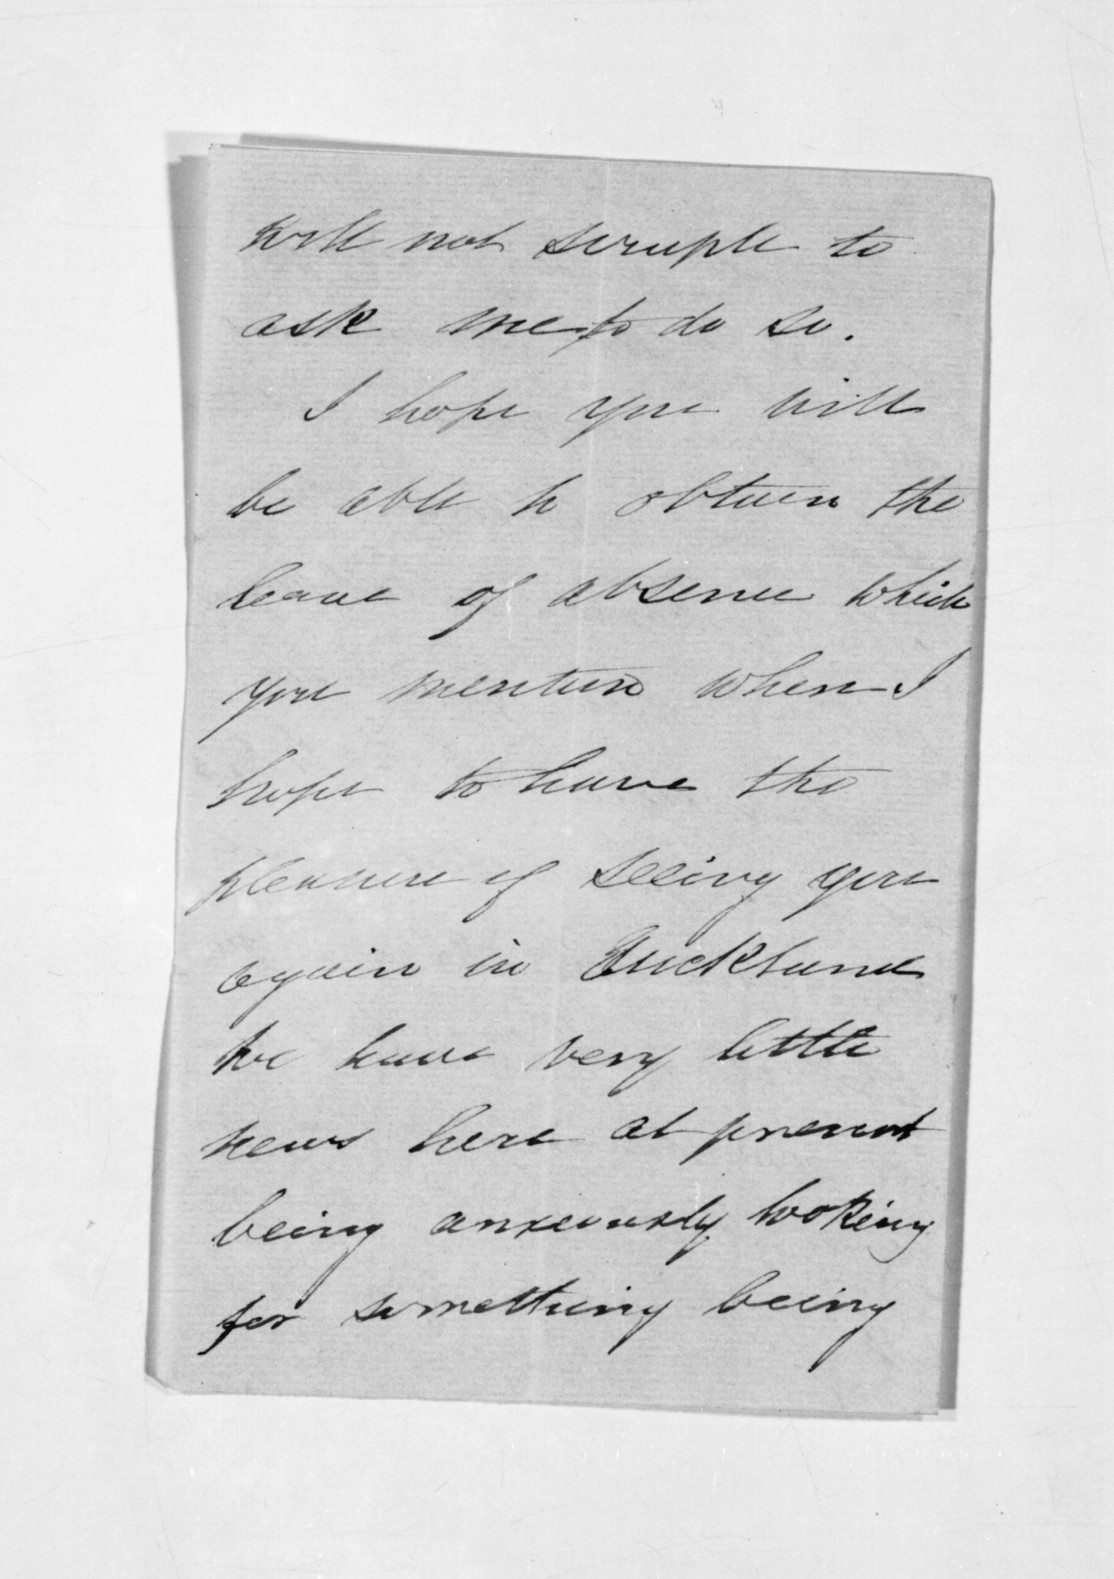 will not scruple to
ask me to do so.
I hope you will
be able to obtain the
leave of absence which
you mention when I
hope to have the
pleasure of seeing you
again in Auckland
We have very little
news here at present
being anxiously looking
for something being